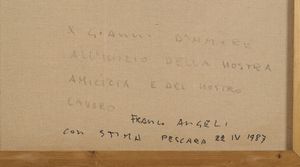 X GIANNI D'AMORE
ALL'INIZIO DELLA NOSTRA
AMICIZIA E DEL NOSTRO
LAVORO
FRANCO ANGELI
CON STIMA PESCARA 22 IV 1987